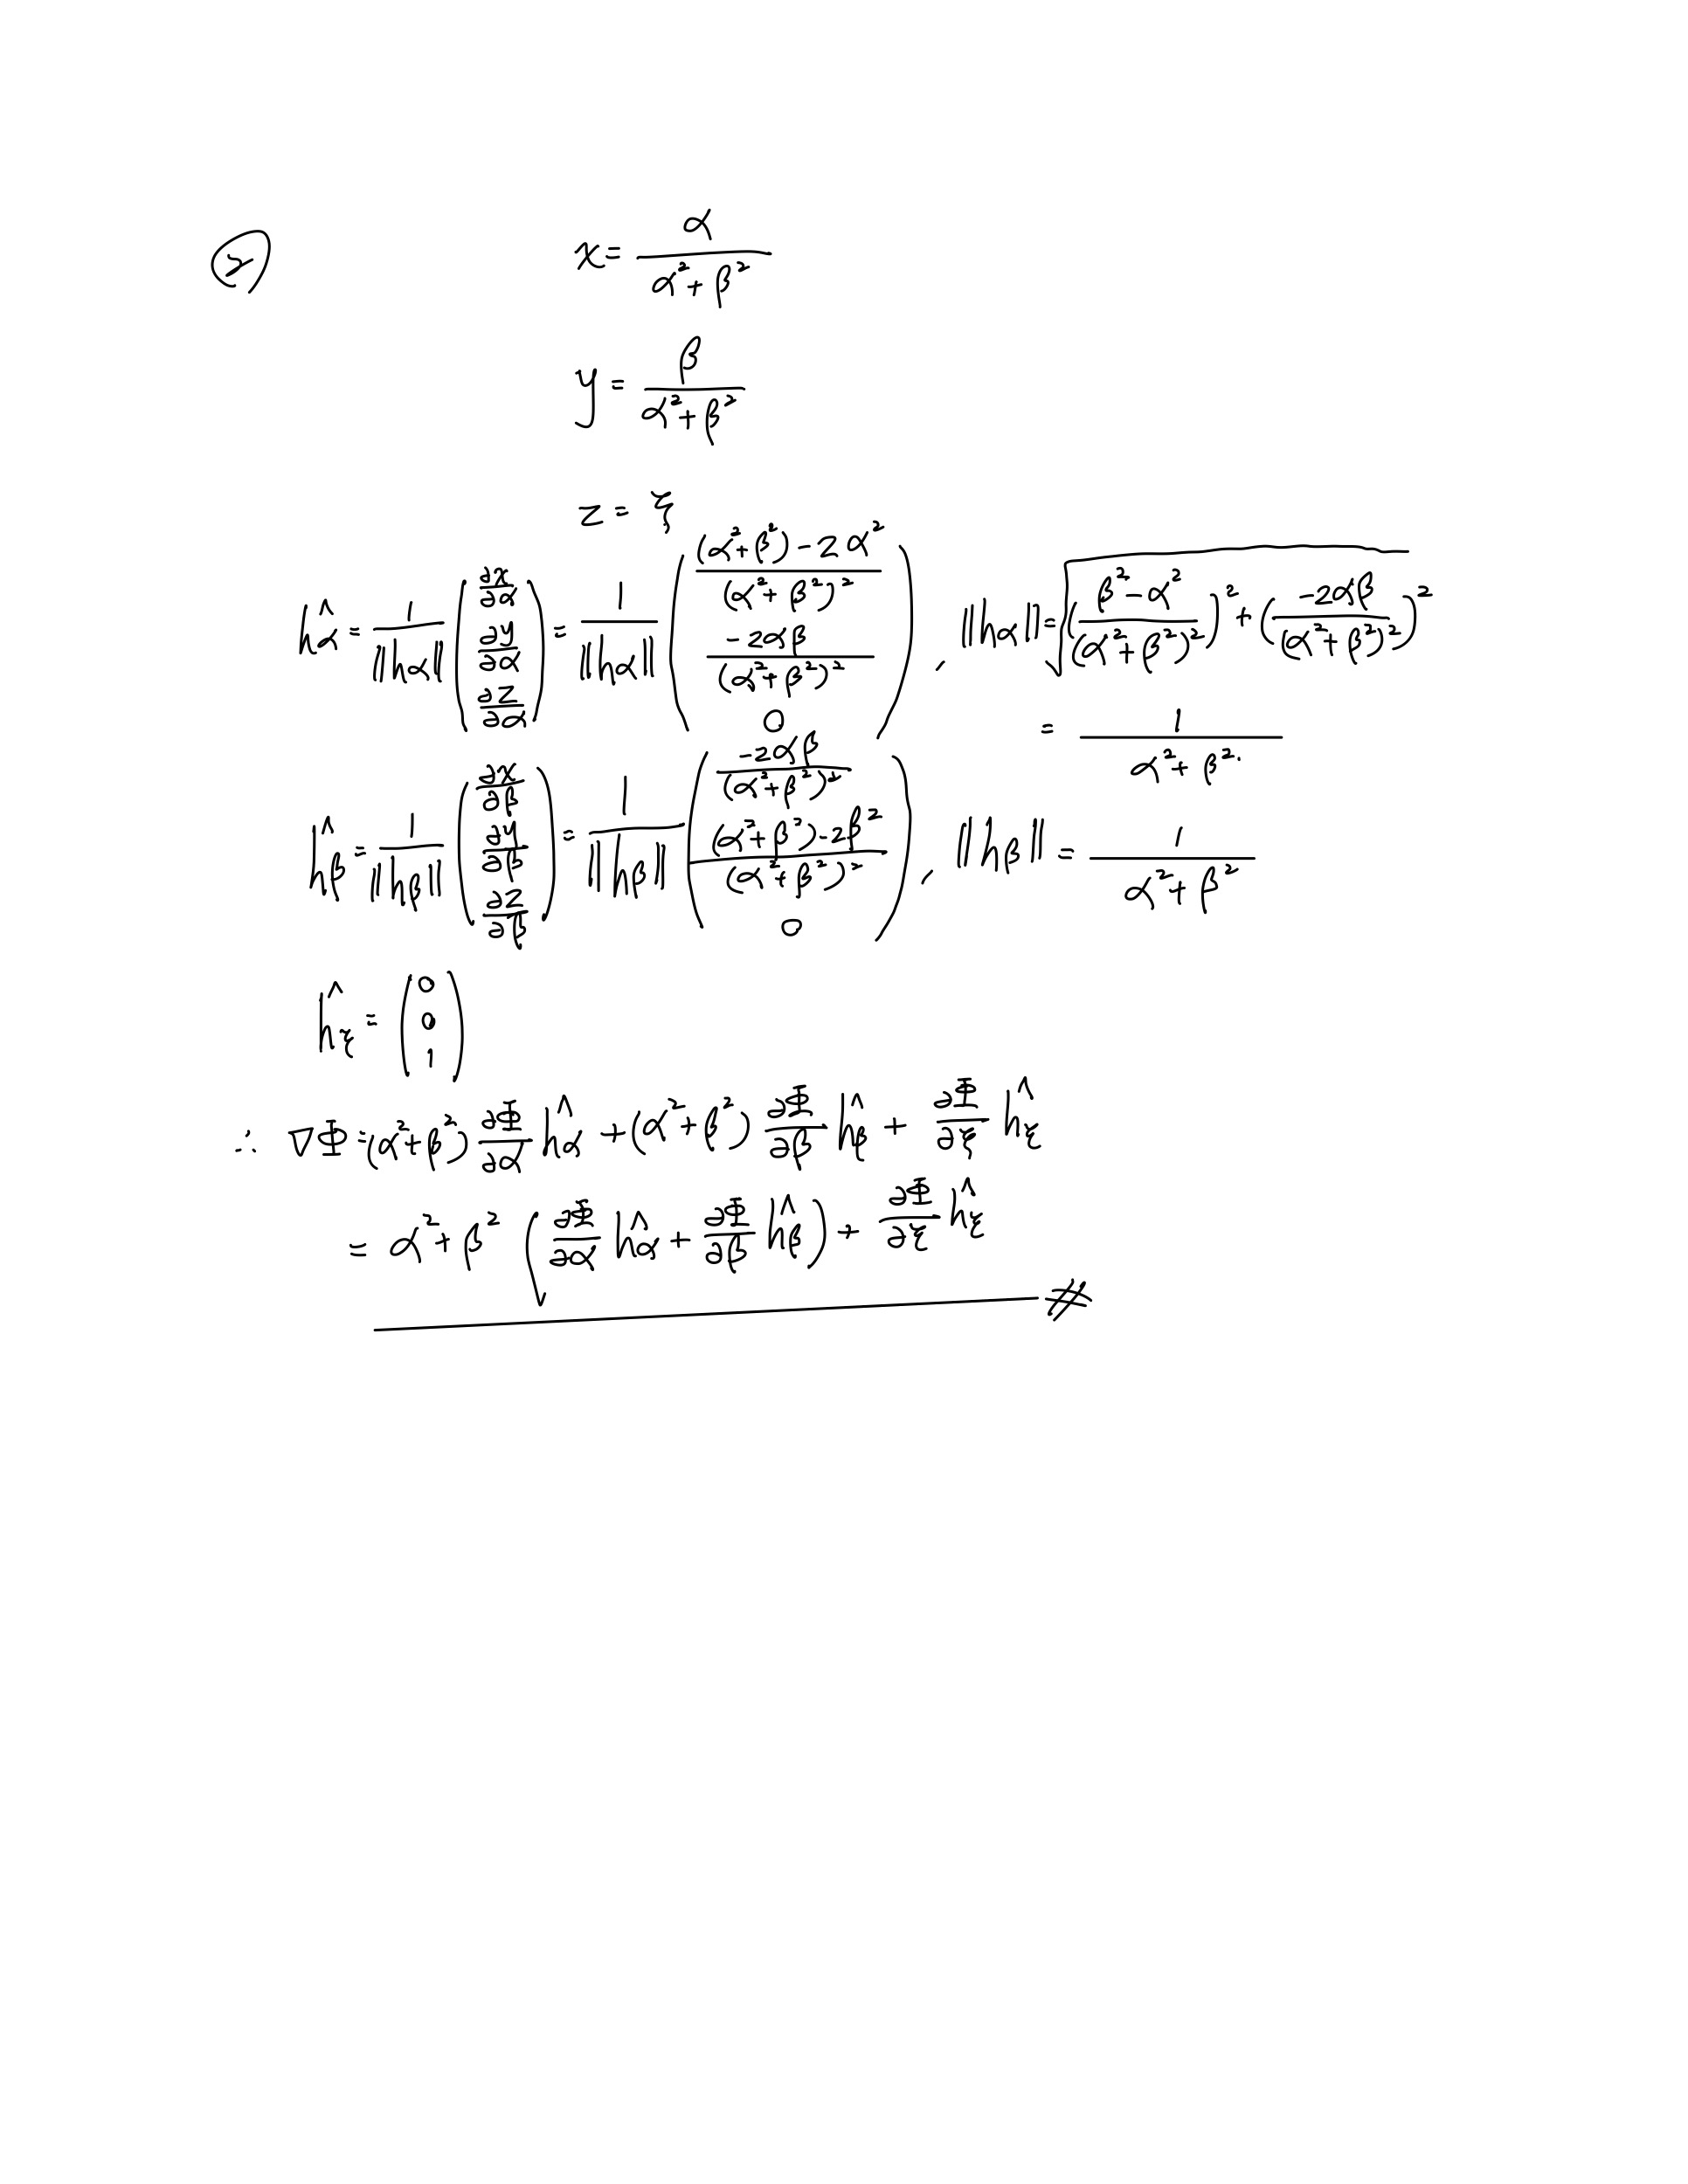 ② x = α / (α² + β²)
y = β / (α² + β²)
z = ξ
ĥ_α = 1/‖h_α‖ (∂x/∂α, ∂y/∂α, ∂z/∂α) = 1/‖h_α‖ ( ((α² + β²) - 2α²) / (α² + β²)², -2αβ / (α² + β²)², 0 ), ‖h_α‖ = √( ((β² - α²) / (α² + β²)²)² + (-2αβ / (α² + β²)²)² )
= 1 / (α² + β²).
ĥ_β = 1/‖h_β‖ (∂x/∂β, ∂y/∂β, ∂z/∂β) = 1/‖h_β‖ ( -2αβ / (α² + β²)², ((α² + β²) - 2β²) / (α² + β²)², 0 ), ‖h_β‖ = 1 / (α² + β²)
ĥ_ξ = (0, 0, 1)
∴ ∇Φ = (α² + β²) ∂Φ/∂α ĥ_α + (α² + β²) ∂Φ/∂β ĥ_β + ∂Φ/∂ξ ĥ_ξ
= α² + β² (∂Φ/∂α ĥ_α + ∂Φ/∂β ĥ_β) + ∂Φ/∂ξ ĥ_ξ